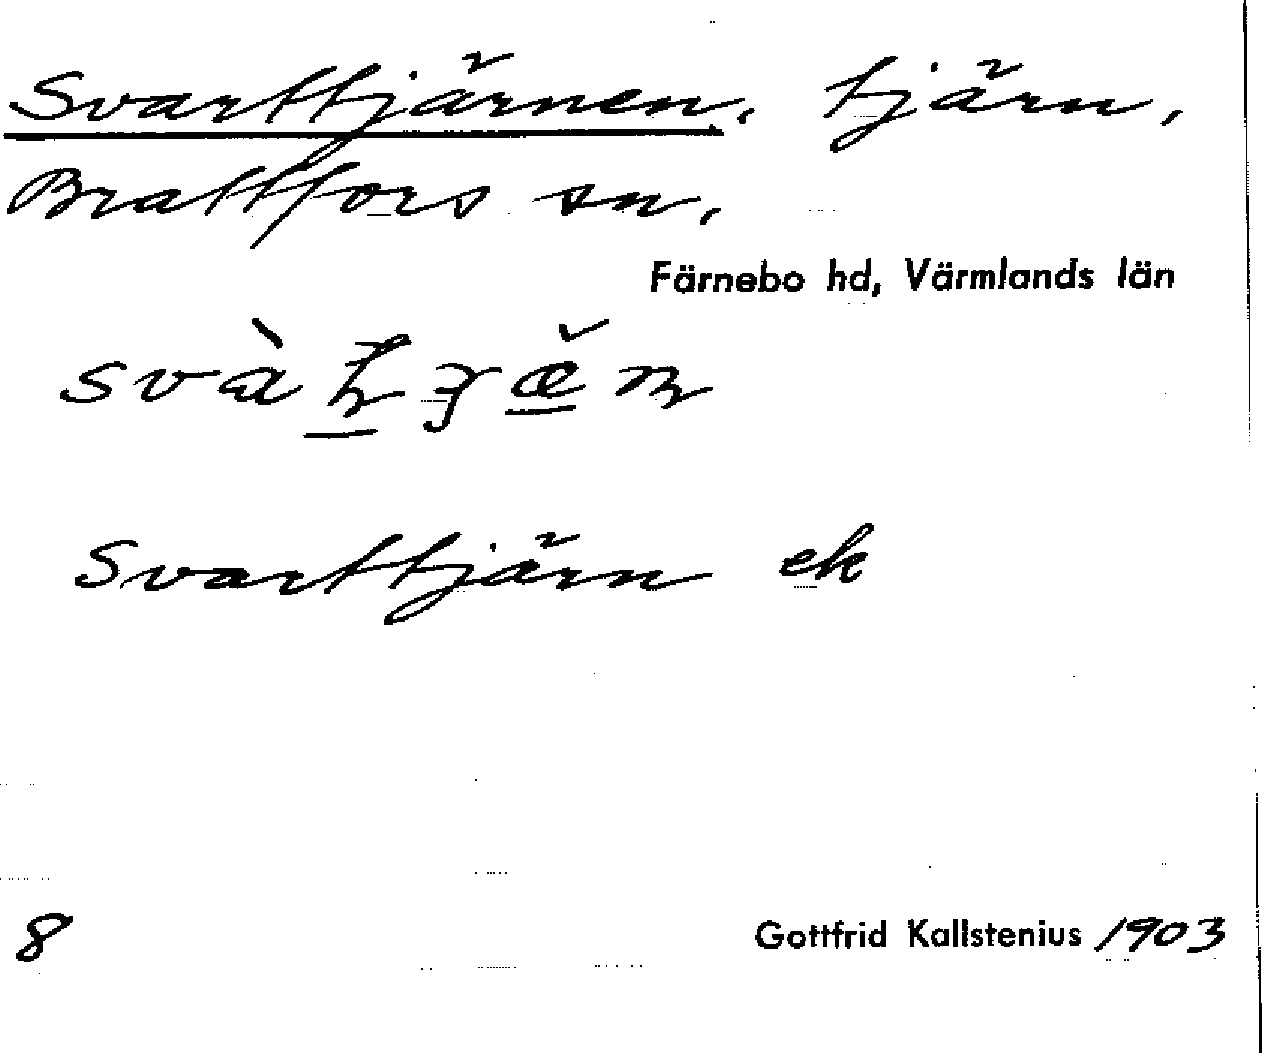 Svarttjärnen, tjärn,
Brattfors sn,
Färnebo hd, Värmlands län
Svarttjärn ek
8
Gottfrid Kallstenius 1903